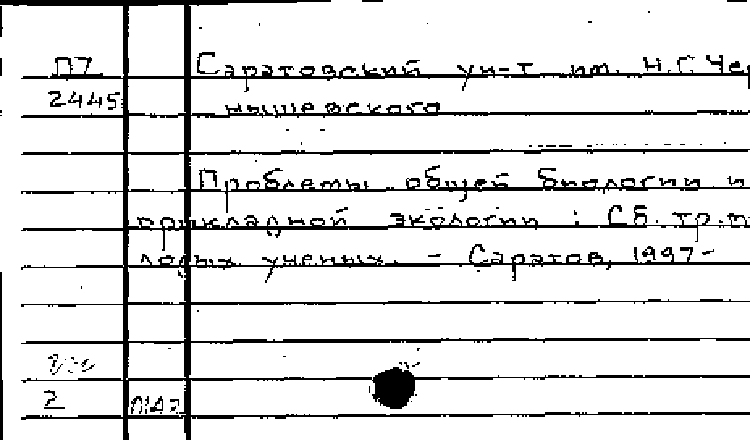 П7 Саратовский ун-т им. Н.Г.Чер
2445 нышевского
Проблемы общей биологии и
прикладной экологии : Сб. тр. м
лодых ученых. - Саратов, 1997-
2